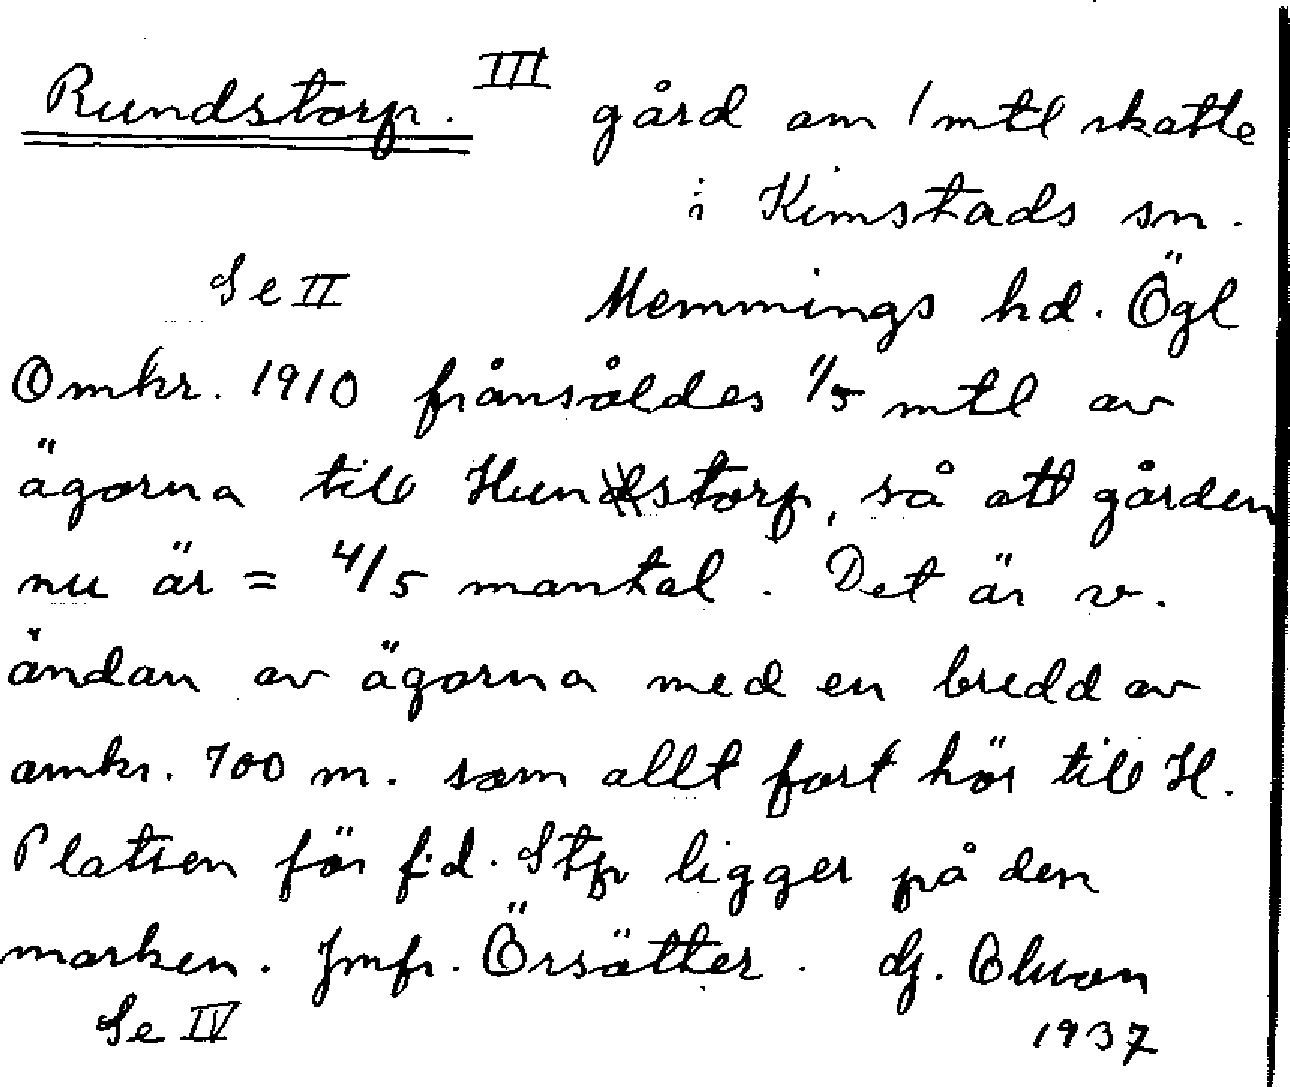 Rundstorp. III gård om 1 mtl skatte
i Kimstads sn.
Se II Memmings hd. Ögl
Omkr. 1910 frånsåldes 1/5 mtl av
ägorna till Hunstorp, så att gården
nu är = 4/5 mantal. Det är v.
ändan av ägorna med en bredd av
omkr. 700 m. som allt fort hör till H.
Platsen för f.d. Stp ligger på den
marken. Jmfr. Örsätter.
Se IV 1937